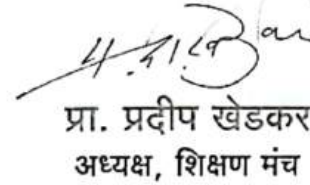 प्रा. प्रदीप खेडकर
अध्यक्ष, शिक्षण मंच